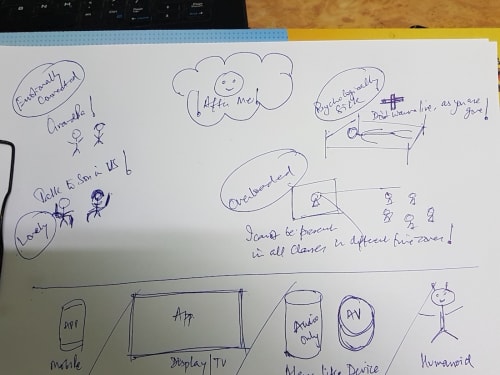 Emotionally
Connected
Grandpa!
! After Me!
Psychologically
Sick
Dont wanna live, as you are
gone!
Talk to Son in US !
Lonely
Overloaded
I cannot be present
in all classes in different time zones!
APP
Mobile
App
Display/TV
Audio
only
AV
like Device
Humanoid